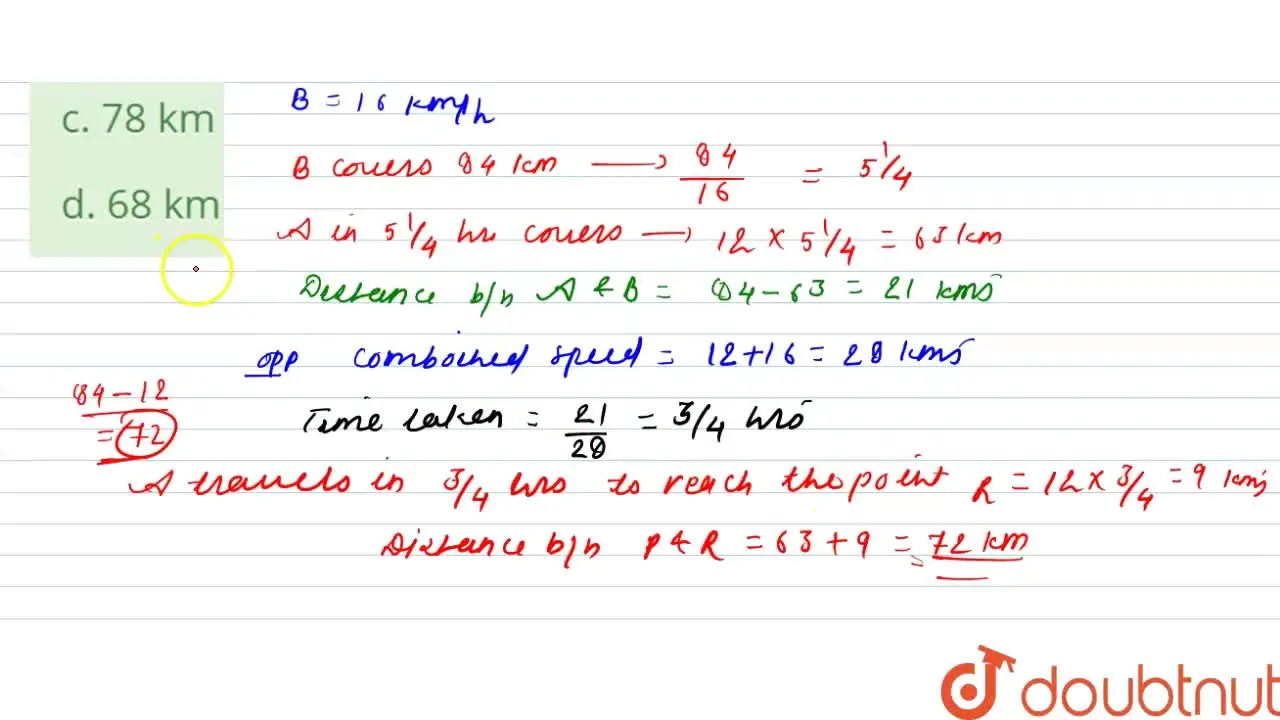 c. 78 km
d. 68 km
B = 16 km/h
B covers 84 km → 84/16 = 5 1/4
A in 5 1/4 hrs covers → 12 × 5 1/4 = 63 km
Distance b/n A & B = 84 - 63 = 21 kms
opp combained speed = 12 + 16 = 28 kms
84 - 12
= 72
Time taken = 21/28 = 3/4 hrs
A travels in 3/4 hrs to reach the point R = 12 × 3/4 = 9 kms
Distance b/n P & R = 63 + 9 = 72 km
doubtnut